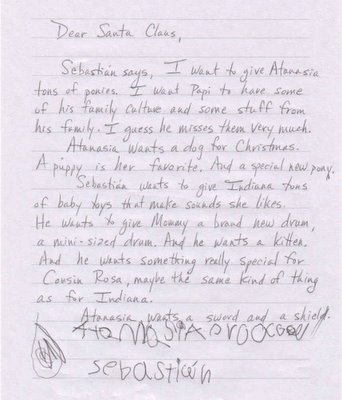 Dear Santa Claus,
Sebastián says, I want to give Atanasia
tons of ponies. I want Papi to have some
of his family culture and some stuff from
his family. I guess he misses them very much.
Atanasia wants a dog for Christmas.
A puppy is her favorite. And a special new pony.
Sebastián wants to give Indiana tons
of baby toys that make sounds she likes.
He wants to give Mommy a brand new drum,
a mini-sized drum. And he wants a kitten.
And he wants something really special for
Cousin Rosa, maybe the same kind of thing
as for Indiana.
Atanasia wants a sword and a shield.
sebastián